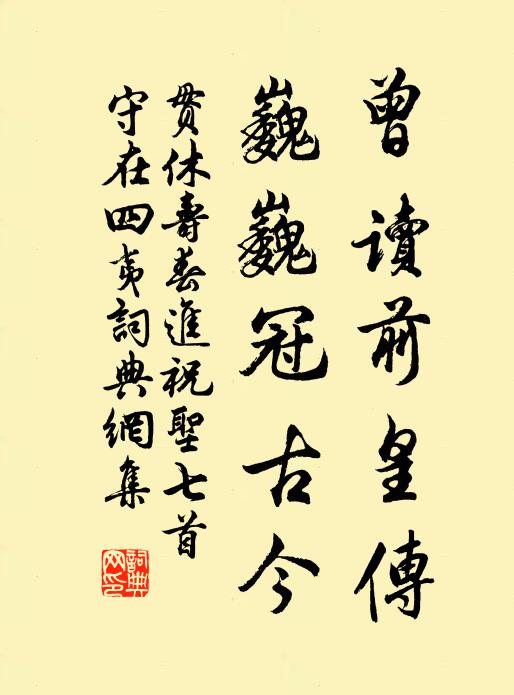 曾讀前皇傳
巍巍冠古今
貫休壽春進祝聖七首
守在四夷詞典網集
詞典网印